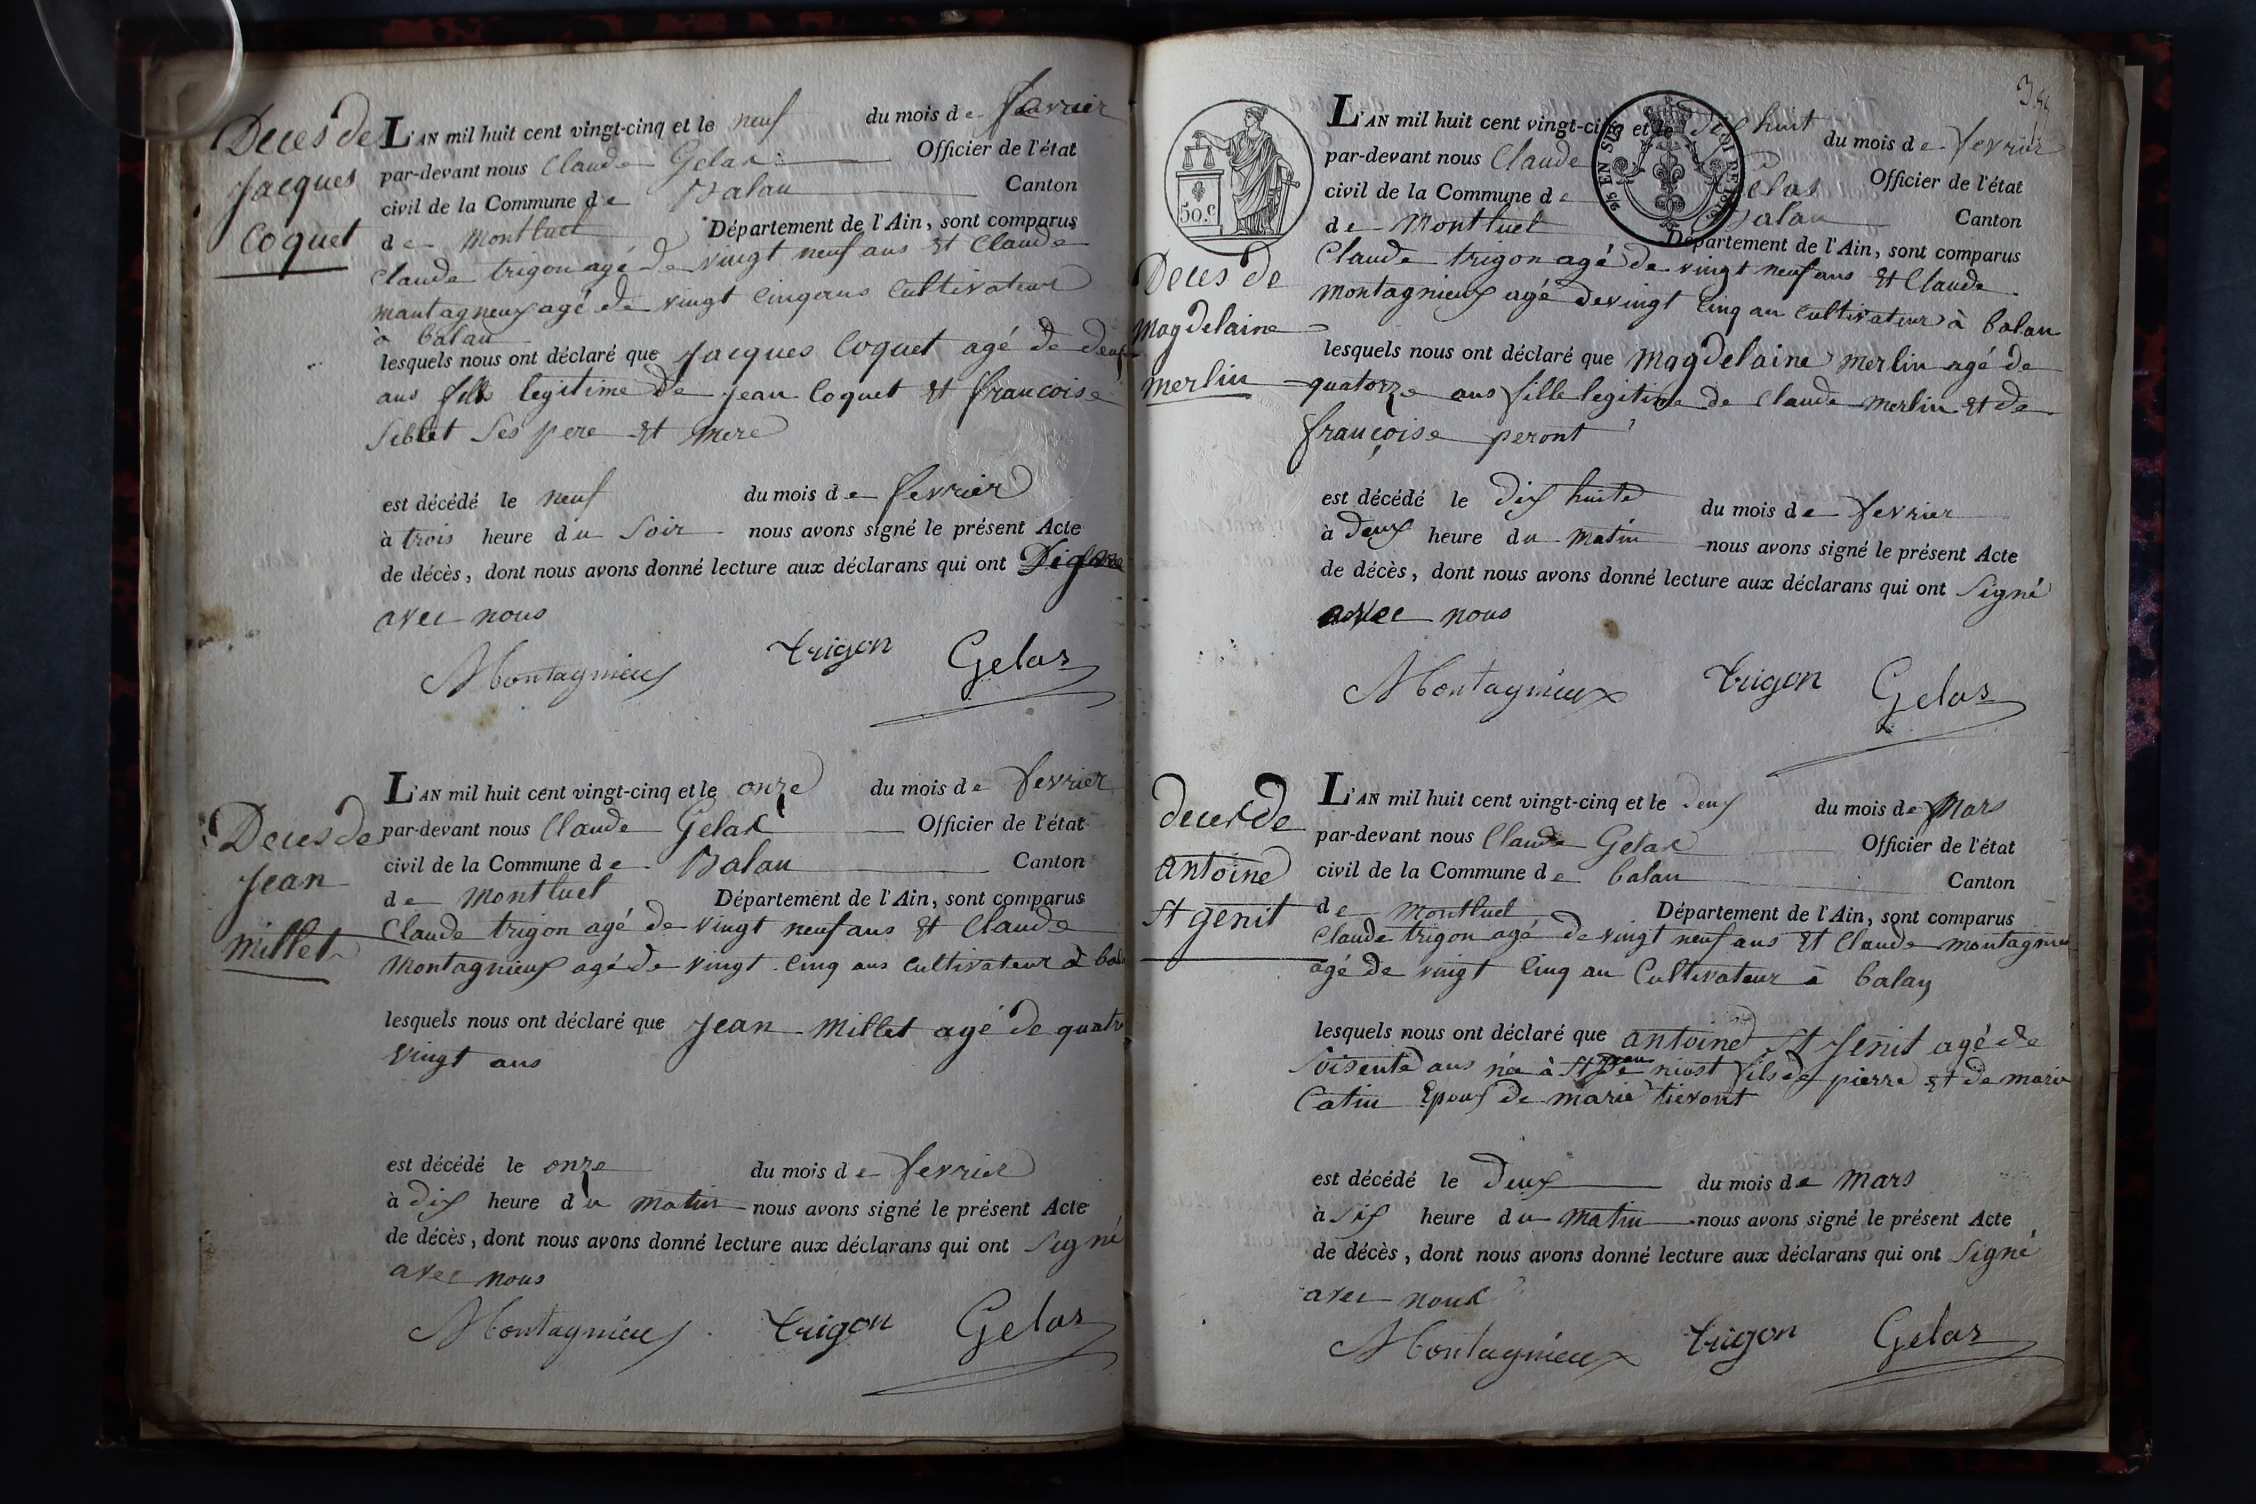 Deces de
Jacques
Coquet
L'AN mil huit cent vingt-cinq et le neuf du mois de fevrier
par-devant nous Claude Gelas Officier de l'état
civil de la Commune de Balan Canton
de Montluel Département de l'Ain, sont comparus
Claude trigon agé de vingt neuf ans et Claude
montagneux agé de vingt cinq ans cultivateur
à balan
lesquels nous ont déclaré que Jacques Coquet agé de deux
ans fils legitime de jean Coquet et francoise
Seblet Ses pere et mere
est décédé le neuf du mois de fevrier
à trois heure du Soir nous avons signé le présent Acte
de décès, dont nous avons donné lecture aux déclarans qui ont Signé
avec nous
Montagnieux trigon Gelas
Deces de
Jean
millet
L'AN mil huit cent vingt-cinq et le onze du mois de fevrier
par-devant nous Claude Gelas Officier de l'état
civil de la Commune de Balan Canton
de Montluel Département de l'Ain, sont comparus
Claude trigon agé de vingt neuf ans et Claude
Montagnieux agé de vingt cinq ans cultivateur à bal
lesquels nous ont déclaré que Jean Millet agé de quatre
vingt ans
est décédé le onze du mois de fevrier
à dix heure du matin nous avons signé le présent Acte
de décès, dont nous avons donné lecture aux déclarans qui ont Signé
avec nous
Montagnieux trigon Gelas
50.c
Deces de
Magdelaine
merlin
L'AN mil huit cent vingt-cinq et le dix huit du mois de fevrier
par-devant nous Claude Gelas Officier de l'état
civil de la Commune de Balan Canton
de Montluel Département de l'Ain, sont comparus
Claude trigon agé de vingt neuf ans et Claude
montagnieux agé de vingt cinq an cultivateur à balan
lesquels nous ont déclaré que Magdelaine merlin agé de
quatorze ans fille legitime de Claude merlin et de
françoise peront
est décédé le dix huite du mois de fevrier
à deux heure du matin nous avons signé le présent Acte
de décès, dont nous avons donné lecture aux déclarans qui ont Signé
avec nous
Montagnieux trigon Gelas
deces de
antoine
st genit
L'AN mil huit cent vingt-cinq et le deux du mois de Mars
par-devant nous Claude Gelas Officier de l'état
civil de la Commune de balan Canton
de Montluel Département de l'Ain, sont comparus
Claude trigon agé de vingt neuf ans et Claude montagnieu
agé de vingt cinq an Cultivateur à balan
lesquels nous ont déclaré que antoine st Jenit agé de
Soisente ans née à st niost fils de pierre et de marie
Catin Epoux de marie tievont
est décédé le deux du mois de Mars
à Six heure du matin nous avons signé le présent Acte
de décès, dont nous avons donné lecture aux déclarans qui ont Signé
avec nous
Montagnieux trigon Gelas